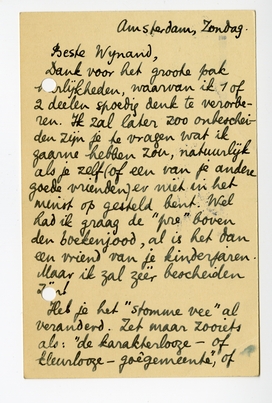 Amsterdam, Zondag.
Beste Wynand,
Dank voor het groote pak
heerlijkheden, waarvan ik 1 of
2 deelen spoedig denk te verorbe-
ren. Ik zal later zoo onbeschei-
den zijn je te vragen wat ik
gaarne hebben zou, natuurlijk
als je zelf (of een van je andere
goede vrienden) er niet in het
minst op gesteld bent. Wel
had ik graag de "pre" boven
den boekenjood, al is het dan
een vriend van je kinderjaren.
Maar ik zal zéér bescheiden
zijn!
Heb je het "stomme vee" al
veranderd. Zet maar zooiets
als: "de karakterlooze - of
kleurlooze - goêgemeente", of